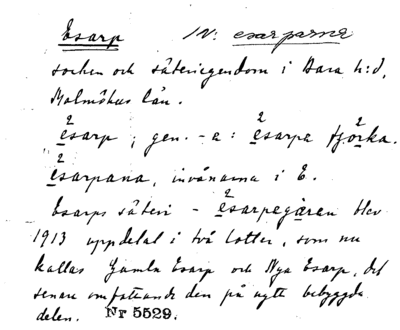 Esarp IN: esarparna
socken och säteriegendom i Bara h:d,
Malmöhus län.
2esarp, gen. -a: 2esarpa 2tjörka.
2esarpana, invånarna i E.
Esarps säteri - 2esarpegåren blev
1913 uppdelat i två lotter, som nu
kallas Gamla Esarp och Nya Esarp, det
senare omfattande den på nytt bebyggda
delen. Nr 5529.